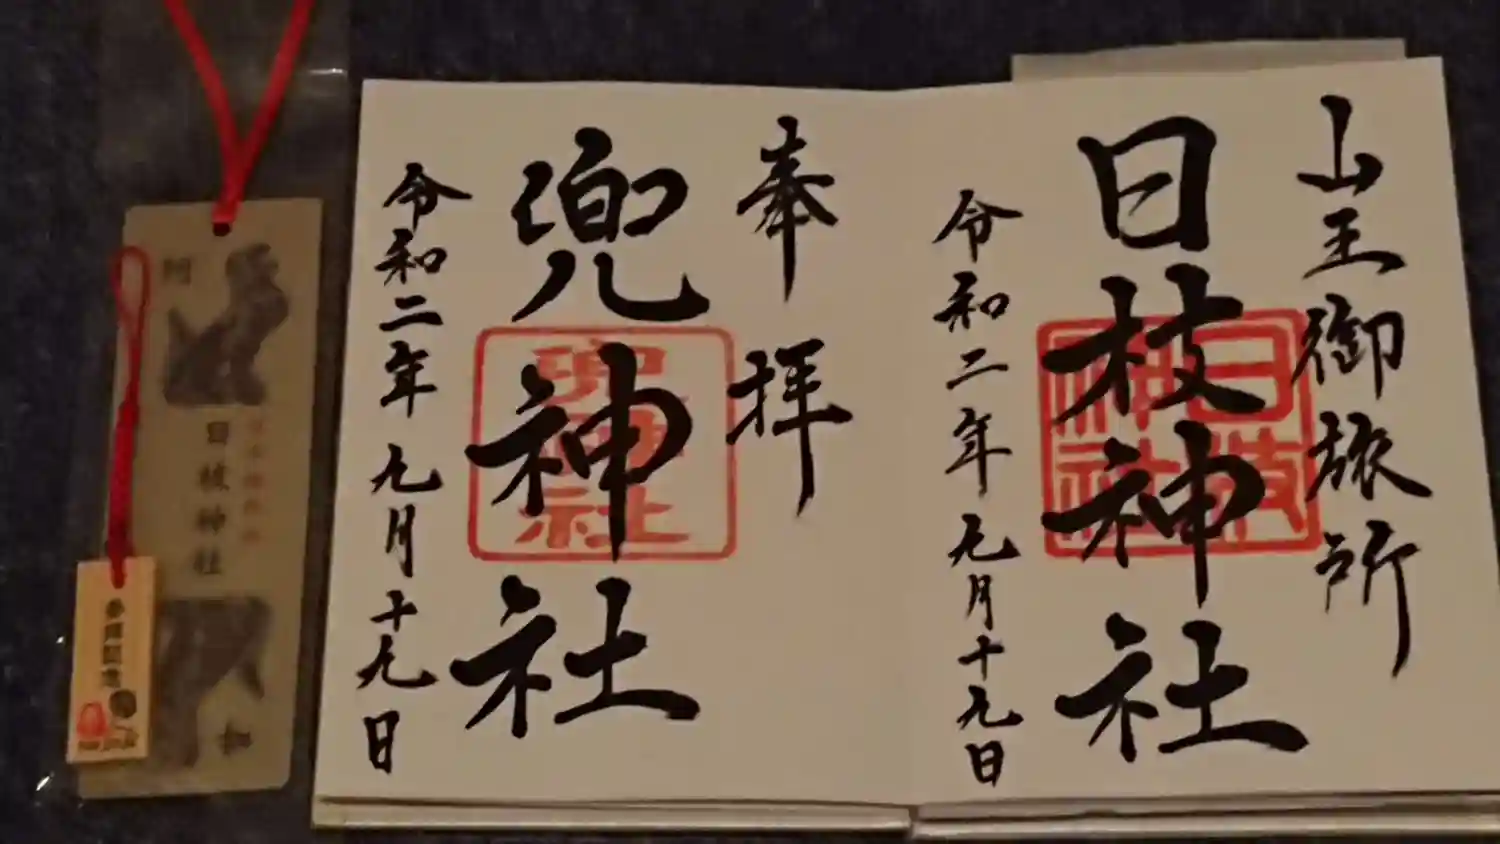 山王御旅所
日枝神社
日枝神社
令和二年九月十九日
奉拝
兜神社
兜神社
令和二年九月十九日
阿
日枝神社